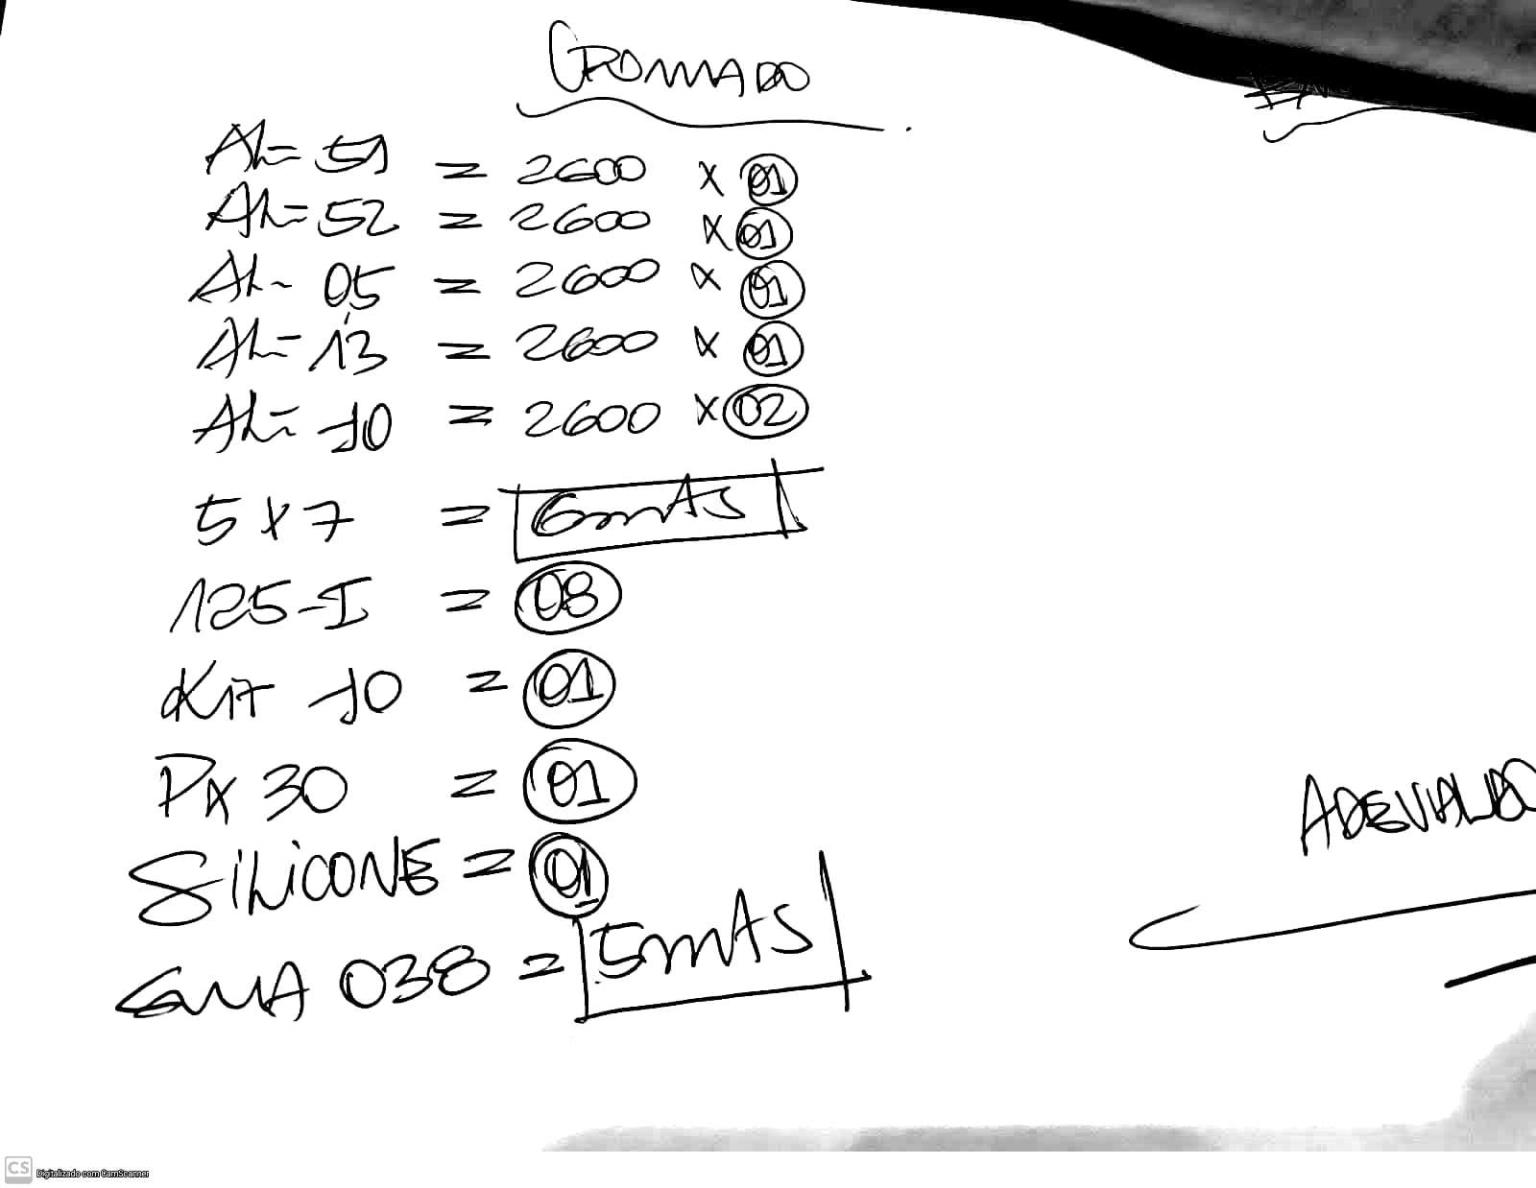 CROMADO
AL= 51 = 2600 x 01
AL= 52 = 2600 x 01
AL- 05 = 2600 x 01
AL= 13 = 2600 x 01
AL= 10 = 2600 x 02
5 x 7 = 6mts
125-I = 08
Kit 10 = 01
PX 30 = 01
ADEVALDO
SILICONE = 01
GUIA 038 = 5mts
CS Digitalizado com CamScanner